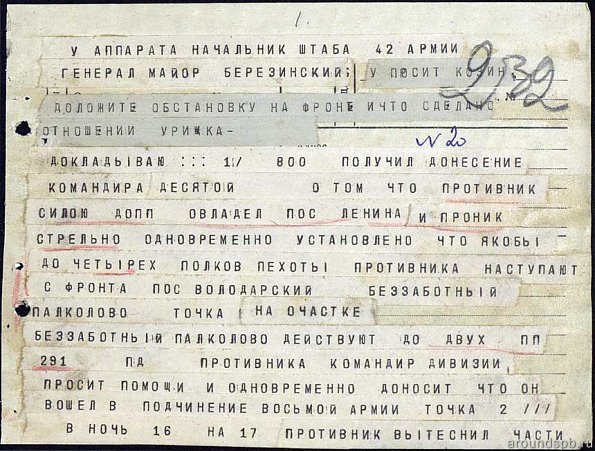 1.
У АППАРАТА НАЧАЛЬНИК ШТАБА 42 АРМИИ
ГЕНЕРАЛ МАЙОР БЕРЕЗИНСКИЙ; У ПРСИТ КОЗИН
232
ДОЛОЖИТЕ ОБСТАНОВКУ НА ФРОНЕ ИЧТО СДЕЛАНО
ОТНОШЕНИИ УРИЦКА-
N 20
ДОКЛАДЫВАЮ ::: 1/ 800 ПОЛУЧИЛ ДОНЕСЕНИЕ
КОМАНДИРА ДЕСЯТОЙ О ТОМ ЧТО ПРОТИВНИК
СИЛОЮ ДОПП ОВЛАДЕЛ ПОС ЛЕНИНА И ПРОНИК
СТРЕЛЬНО ОДНОВРЕМЕННО УСТАНОВЛЕНО ЧТО ЯКОБЫ
ДО ЧЕТЫРЕХ ПОЛКОВ ПЕХОТЫ ПРОТИВНИКА НАСТУПАЮТ
С ФРОНТА ПОС ВОЛОДАРСКИЙ БЕЗЗАБОТНЫЙ
ПАЛКОЛОВО ТОЧКА НА ОЧАСТКЕ
БЕЗЗАБОТНЫЙ ПАЛКОЛОВО ДЕЙСТВУЮТ ДО ДВУХ ПП
291 ПД ПРОТИВНИКА КОМАНДИР ДИВИЗИИ
ПРОСИТ ПОМОЩИ И ОДНОВРЕМЕННО ДОНОСИТ ЧТО ОН
ВОШЕЛ В ПОДЧИНЕНИЕ ВОСЬМОЙ АРМИИ ТОЧКА 2 ///
В НОЧЬ 16 НА 17 ПРОТИВНИК ВЫТЕСНИЛ ЧАСТИ
aroundspb.ru